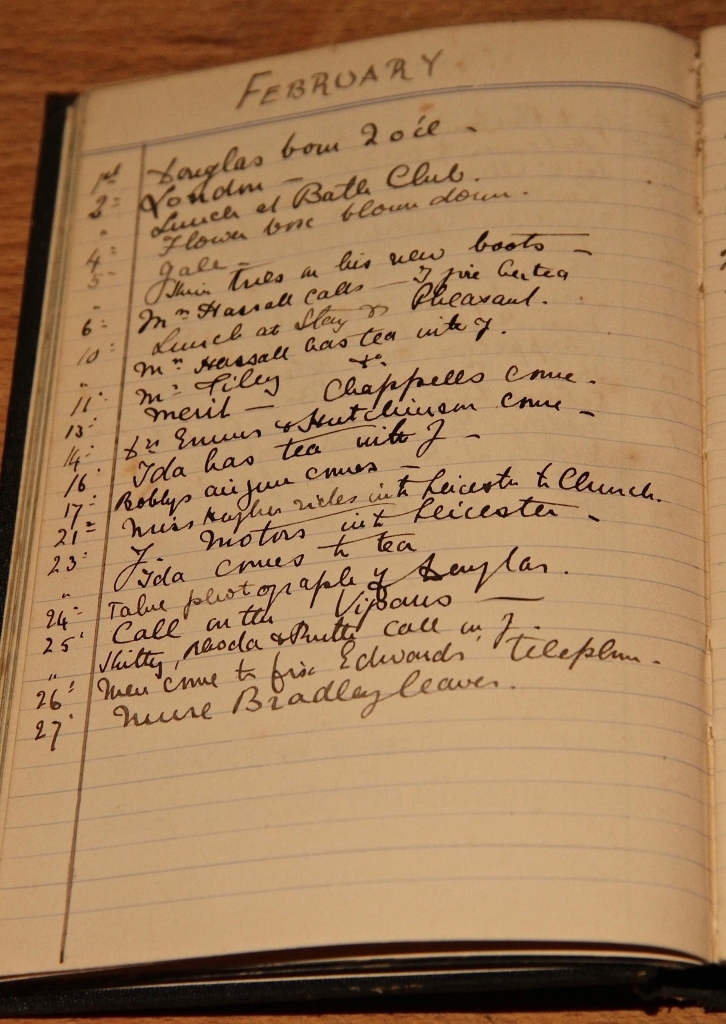 FEBRUARY
1st Douglas born 2 o'c -
2: London -
" Lunch at Bath Club.
4: Flower box blown down.
5: Gale -
" tries on his new boots -
6: Mrs Hassall calls - I give her tea
10: Lunch at Stag & Pheasant.
" Mrs Hassall has tea with J.
11: Mr Filey do
13: Merit - Chappells come.
14: Drs Emms & Hutchinson come -
16: Ida has tea with J -
17: Bobbys comes -
21: Miss Hughes rides into Leicester to Church.
23: J. Motors into Leicester -
" Ida comes to tea
24: Take photograph of Douglas.
25: Call on the Vipans -
" Kitty, Rhoda & call on J.
26: Men come to fix Edwards' telephone.
27: Nurse Bradley leaves.